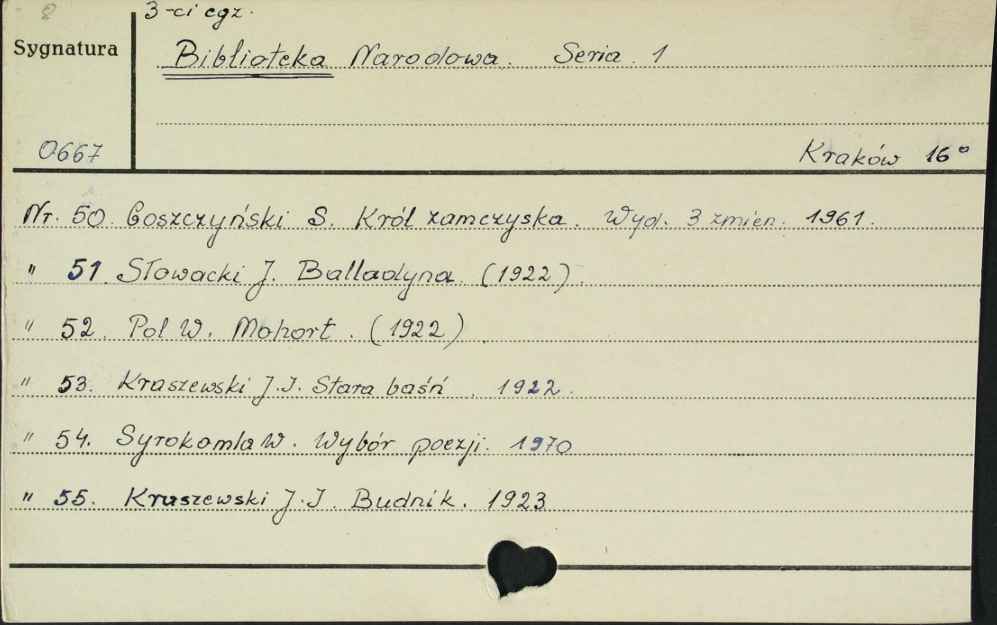 3-ci egz.
Sygnatura
Biblioteka Narodowa. Seria. 1
0667
Kraków 16°
Nr. 50. Goszczyński S. Król zamczyska. Wyd. 3 zmien. 1961.
" 51. Słowacki J. Balladyna. (1922).
" 52. Pol W. Mohort. (1922)
" 53. Kraszewski J.I. Stara baśń. 1922.
" 54. Syrokomla W. Wybór poezji. 1970
" 55. Kruszewski J.I. Budnik. 1923